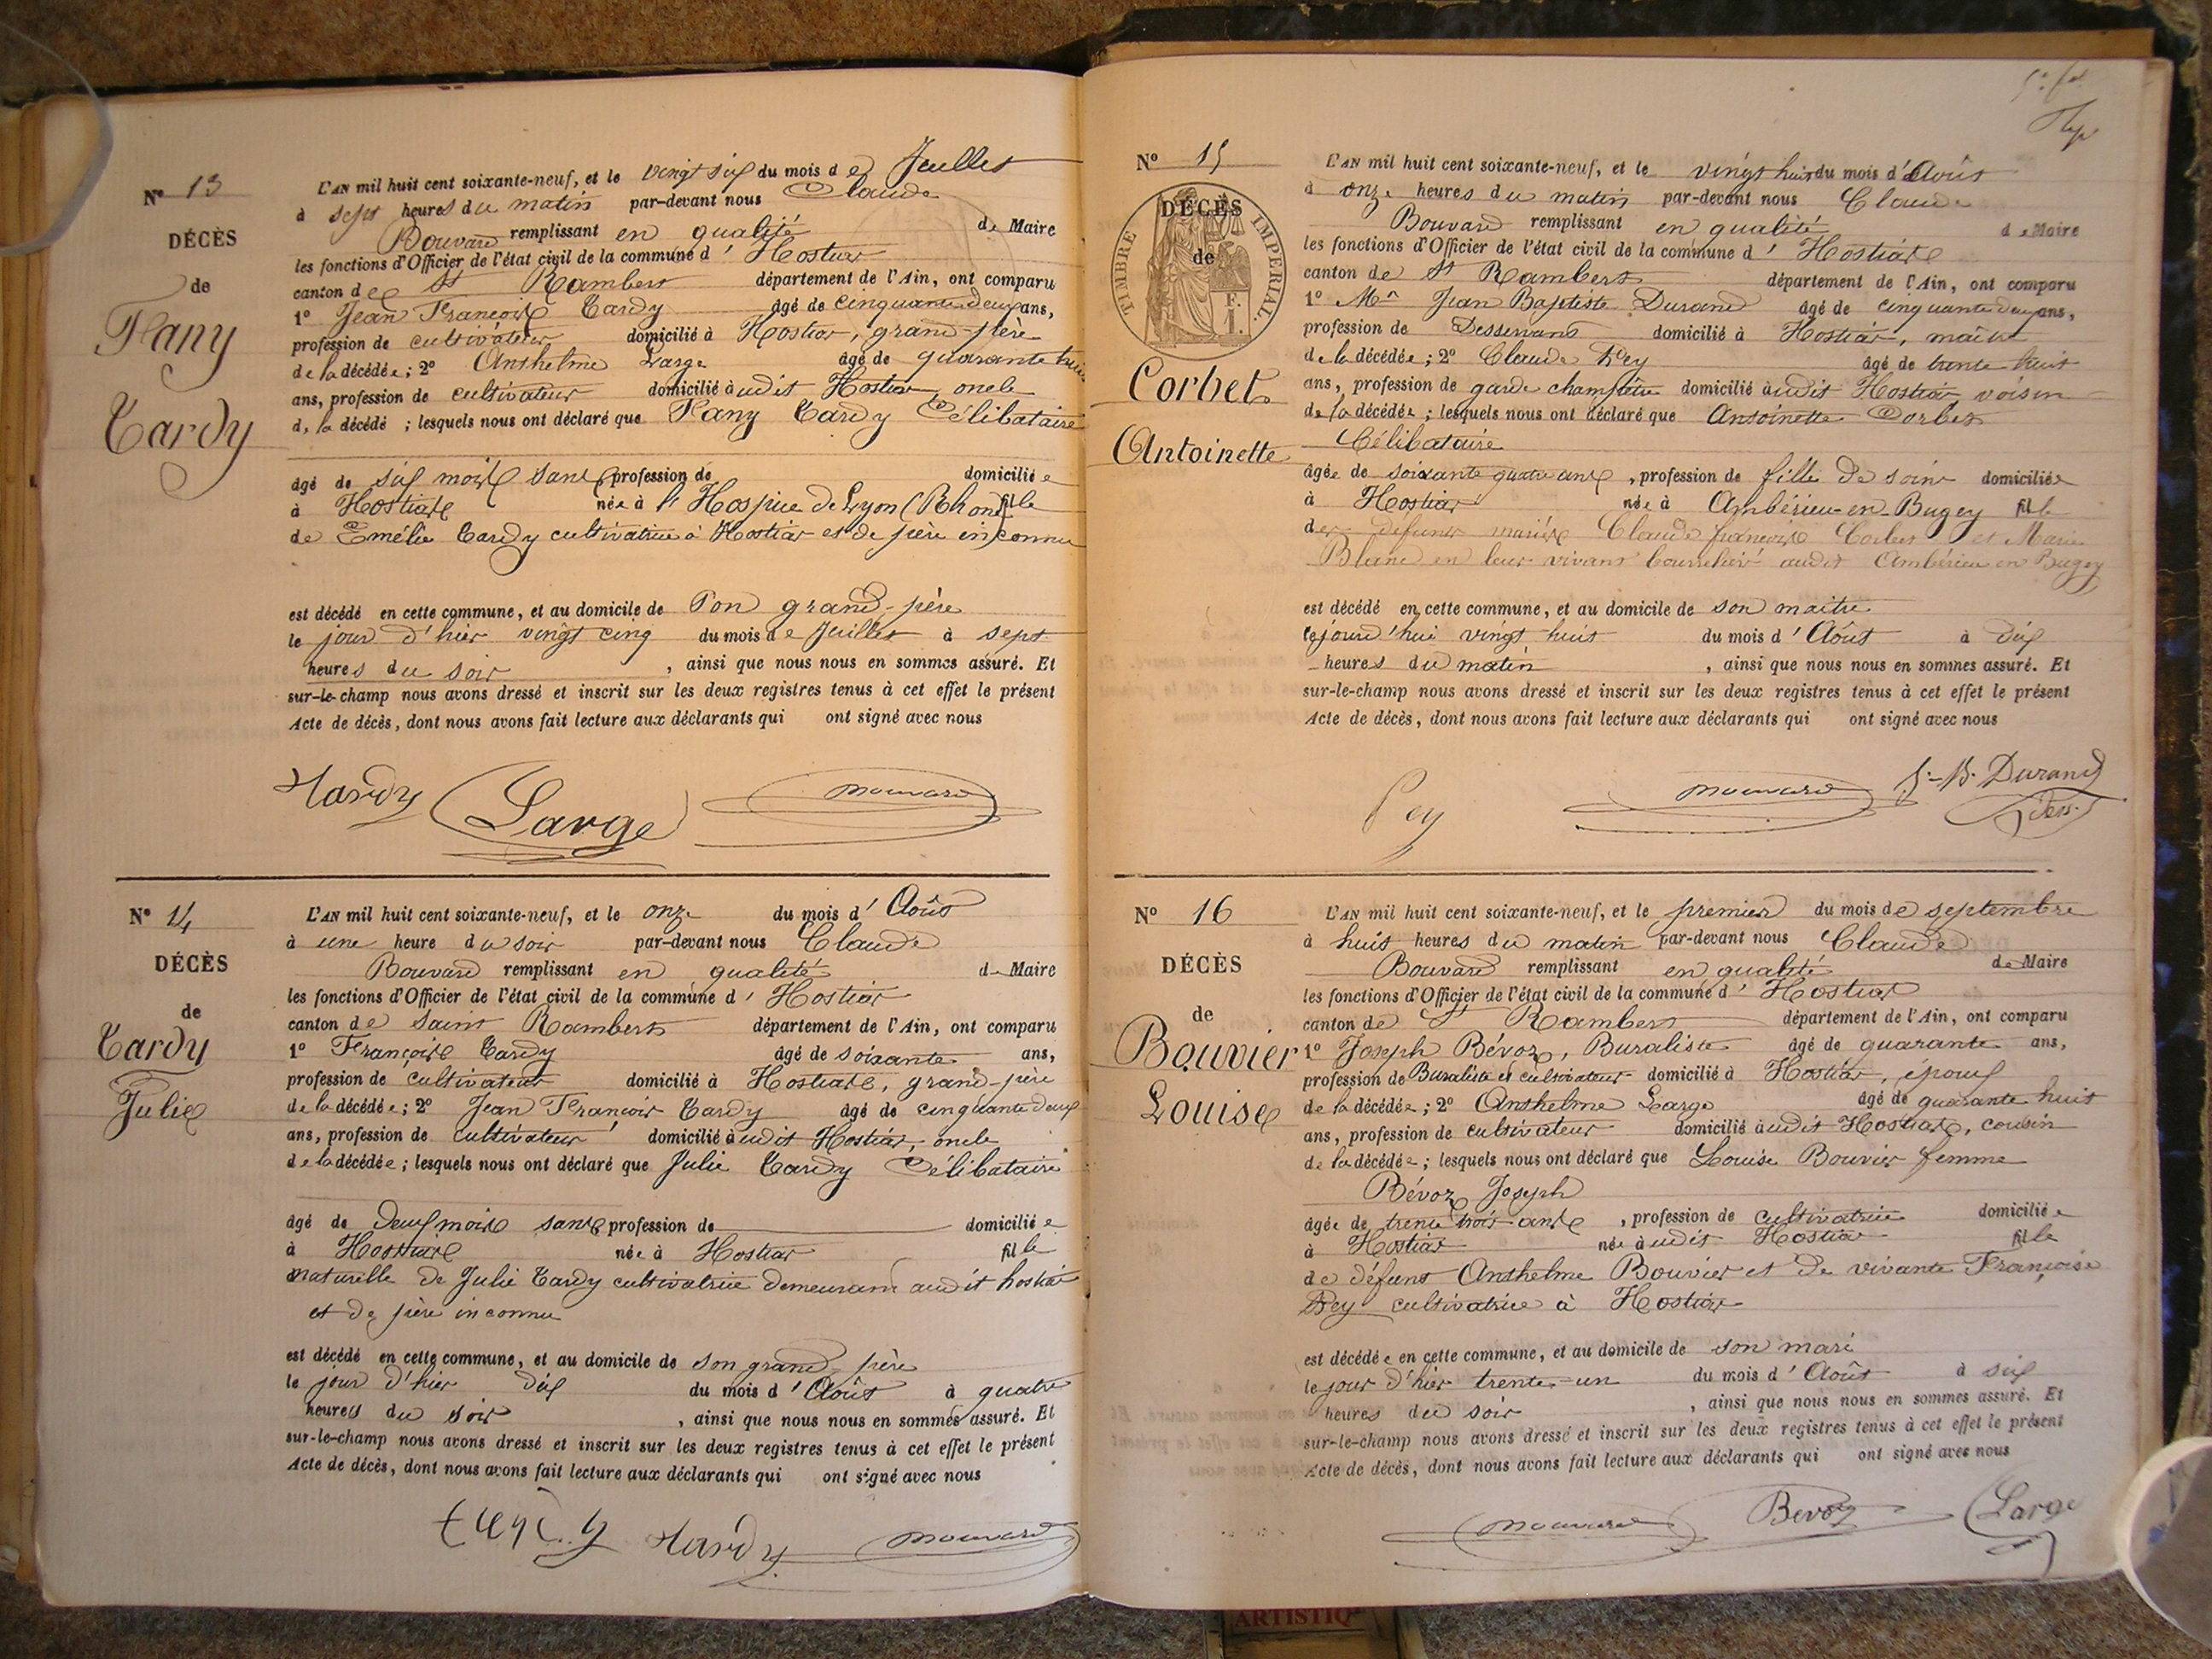 Nº 13
DÉCÈS
de
Fany
Tardy
L'AN mil huit cent soixante-neuf, et le vingt six du mois de Juillet
à sept heures du matin par-devant nous Claude
Bouvard remplissant en qualité de Maire
les fonctions d'Officier de l'état civil de la commune d'Hostiar
canton de St Rambert département de l'Ain, ont comparu
1º Jean François Tardy âgé de cinquante deux ans,
profession de cultivateur domicilié à Hostiar, grand-père
de la décédée; 2º Anthelme Large âgé de quarante huit
ans, profession de cultivateur domicilié audit Hostiar, oncle
de la décédé ; lesquels nous ont déclaré que Fany Tardy Célibataire
âgé de six mois sans profession de domiciliée
à Hostiar née à l'Hospice de Lyon (Rhone) fille
de Emélie Tardy cultivatrice à Hostiar et de père inconnu
est décédé en cette commune, et au domicile de son grand-père
le jour d'hier vingt cinq du mois de Juillet à sept
heures du soir, ainsi que nous nous en sommes assuré. Et
sur-le-champ nous avons dressé et inscrit sur les deux registres tenus à cet effet le présent
Acte de décès, dont nous avons fait lecture aux déclarants qui ont signé avec nous
Tardy Large Bouvard
Nº 14
DÉCÈS
de
Tardy
Julie
L'AN mil huit cent soixante-neuf, et le onze du mois d'Août
à une heure du soir par-devant nous Claude
Bouvard remplissant en qualité de Maire
les fonctions d'Officier de l'état civil de la commune d'Hostiar
canton de Saint Rambert département de l'Ain, ont comparu
1º François Tardy âgé de soixante ans,
profession de cultivateur domicilié à Hostiar, grand-père
de la décédée; 2º Jean François Tardy âgé de cinquante deux
ans, profession de cultivateur domicilié audit Hostiar, oncle
de la décédée; lesquels nous ont déclaré que Julie Tardy Célibataire
âgé de deux mois sans profession de domiciliée
à Hostiar née à Hostiar fille
naturelle de Julie Tardy cultivatrice demeurant audit hostiar
et de père inconnu
est décédé en cette commune, et au domicile de son grand père
le jour d'hier dix du mois d'Août à quatre
heures du soir, ainsi que nous nous en sommes assuré. Et
sur-le-champ nous avons dressé et inscrit sur les deux registres tenus à cet effet le présent
Acte de décès, dont nous avons fait lecture aux déclarants qui ont signé avec nous
Tardy Bouvard
Nº 15
DÉCÈS
de
TIMBRE IMPÉRIAL.
Corbet
Antoinette
L'AN mil huit cent soixante-neuf, et le vingt huit du mois d'Août
à onze heures du matin par-devant nous Claude
Bouvard remplissant en qualité de Maire
les fonctions d'Officier de l'état civil de la commune d'Hostiar
canton de St Rambert département de l'Ain, ont comparu
1º Mr Jean Baptiste Durand âgé de cinquante deux ans,
profession de Desservant domicilié à Hostiar, maître
de la décédée; 2º Claude Pey âgé de trente huit
ans, profession de garde champêtre domicilié audit Hostiar, voisin
de la décédée ; lesquels nous ont déclaré que Antoinette Corbet
Célibataire
âgée de soixante quatre ans, profession de fille de soins domiciliée
à Hostiar née à Ambérieu-en-Bugey fille
des defunts mariés Claude françois Corbet et Marie
Blanc en leur vivant bourrelier audit Ambérieu en Bugey
est décédé en cette commune, et au domicile de son maitre
cejourd'hui vingt huit du mois d'Août à dix
heures du matin, ainsi que nous nous en sommes assuré. Et
sur-le-champ nous avons dressé et inscrit sur les deux registres tenus à cet effet le présent
Acte de décès, dont nous avons fait lecture aux déclarants qui ont signé avec nous
Pey Bouvard J.-B. Durand
dess.
Nº 16
DÉCÈS
de
Bouvier
Louise
L'AN mil huit cent soixante-neuf, et le premier du mois de septembre
à huit heures du matin par-devant nous Claude
Bouvard remplissant en qualité de Maire
les fonctions d'Officier de l'état civil de la commune d'Hostiar
canton de St Rambert département de l'Ain, ont comparu
1º Joseph Bévoz, Buraliste âgé de quarante ans,
profession de Buraliste et cultivateur domicilié à Hostiar, époux
de la décédée; 2º Anthelme Large âgé de quarante huit
ans, profession de cultivateur domicilié audit Hostiar, cousin
de la décédée; lesquels nous ont déclaré que Louise Bouvier femme
Bévoz Joseph
âgée de trente trois ans, profession de cultivatrice domiciliée
à Hostiar née audit Hostiar fille
de défunt Anthelme Bouvier et de vivante Françoise
Pey cultivatrice à Hostiar
est décédée en cette commune, et au domicile de son mari
le jour d'hier trente-un du mois d'Août à six
heures du soir, ainsi que nous nous en sommes assuré. Et
sur-le-champ nous avons dressé et inscrit sur les deux registres tenus à cet effet le présent
Acte de décès, dont nous avons fait lecture aux déclarants qui ont signé avec nous
Bouvard Bevoz Large
ARTISTIQ